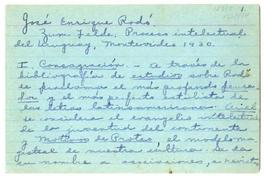 1.
José Enrique Rodó.
Zum Felde, Proceso intelectual
del Uruguay, Montevideo 1930.
I. Consagración. - A través de la
bibliografía de estudios sobre Rodó
se proclama el más profundo pensa-
dor, el más perfecto estilista de
las letras latinoamericanas. Ariel
se considera el evangelio intelectual
de la juventud del continente
Motivos de Proteo, el monumento
de nuestra cultura. Se da
su nombre a asociaciones, a revistas